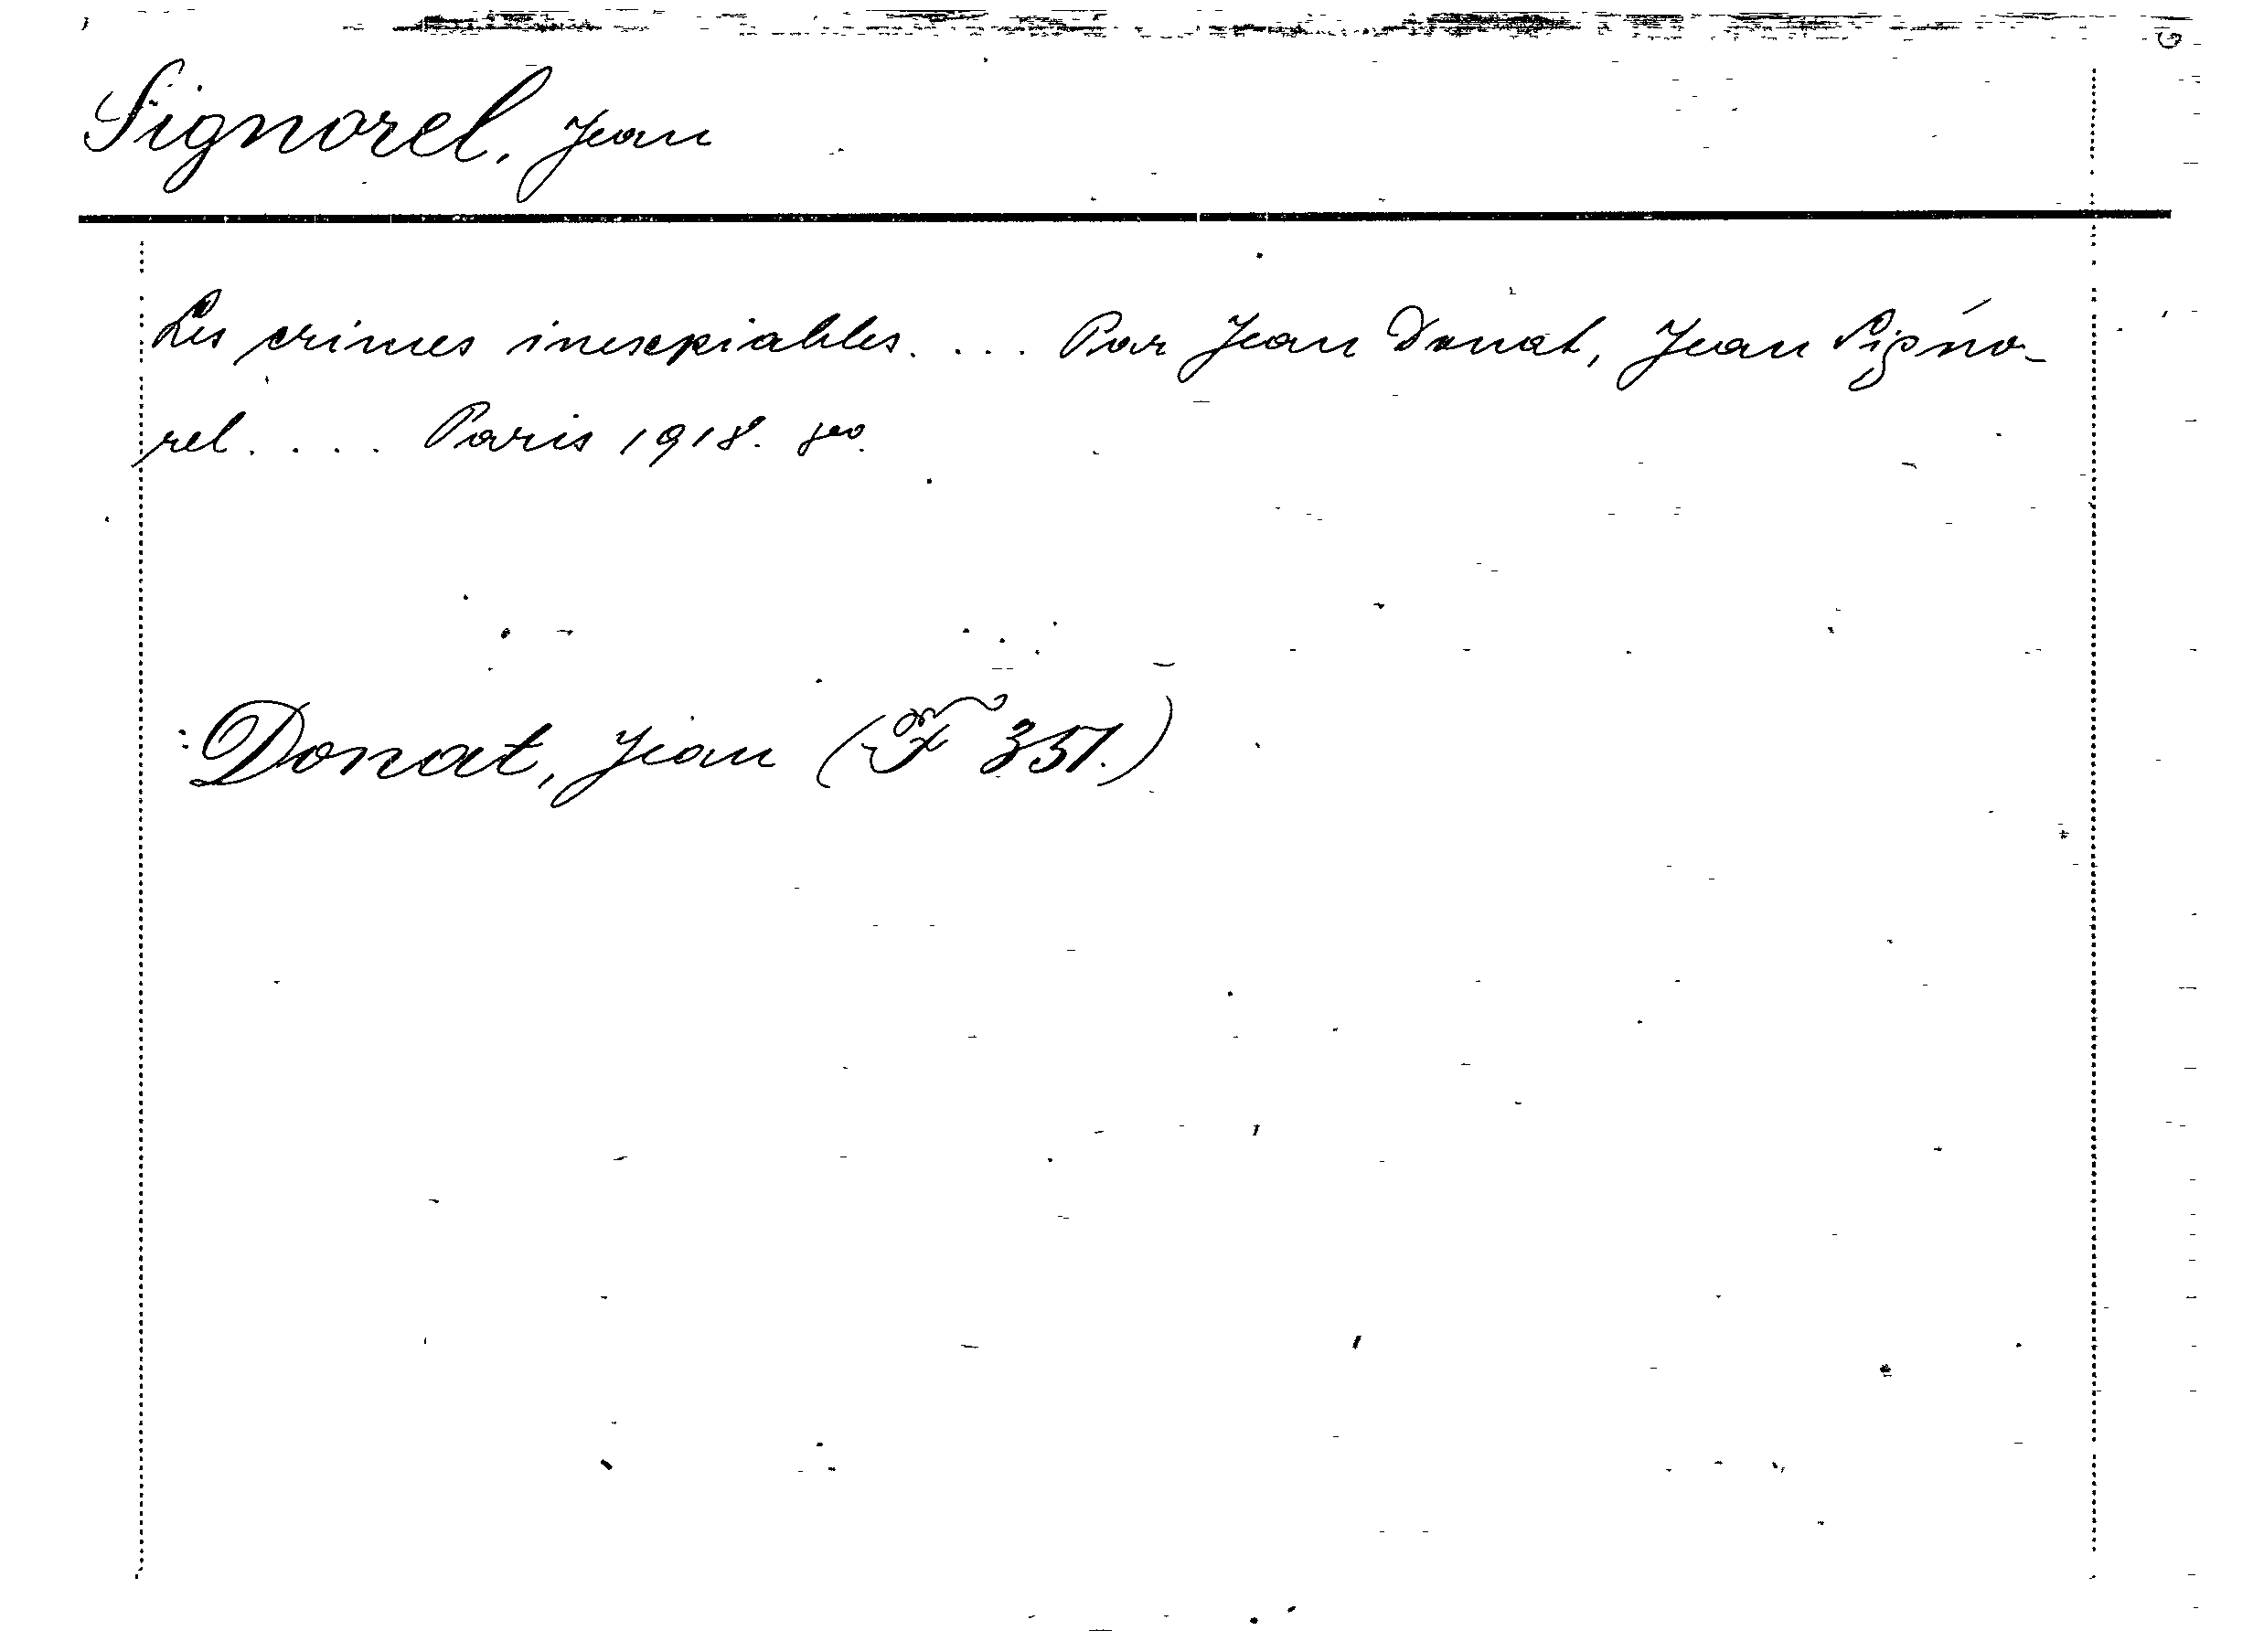 Signorel, Jean
Les crimes inexpiables. ... Par Jean Donat, Jean Signo-
rel. ... Paris 1918. 8vo.
: Donat, Jean (F 351.)